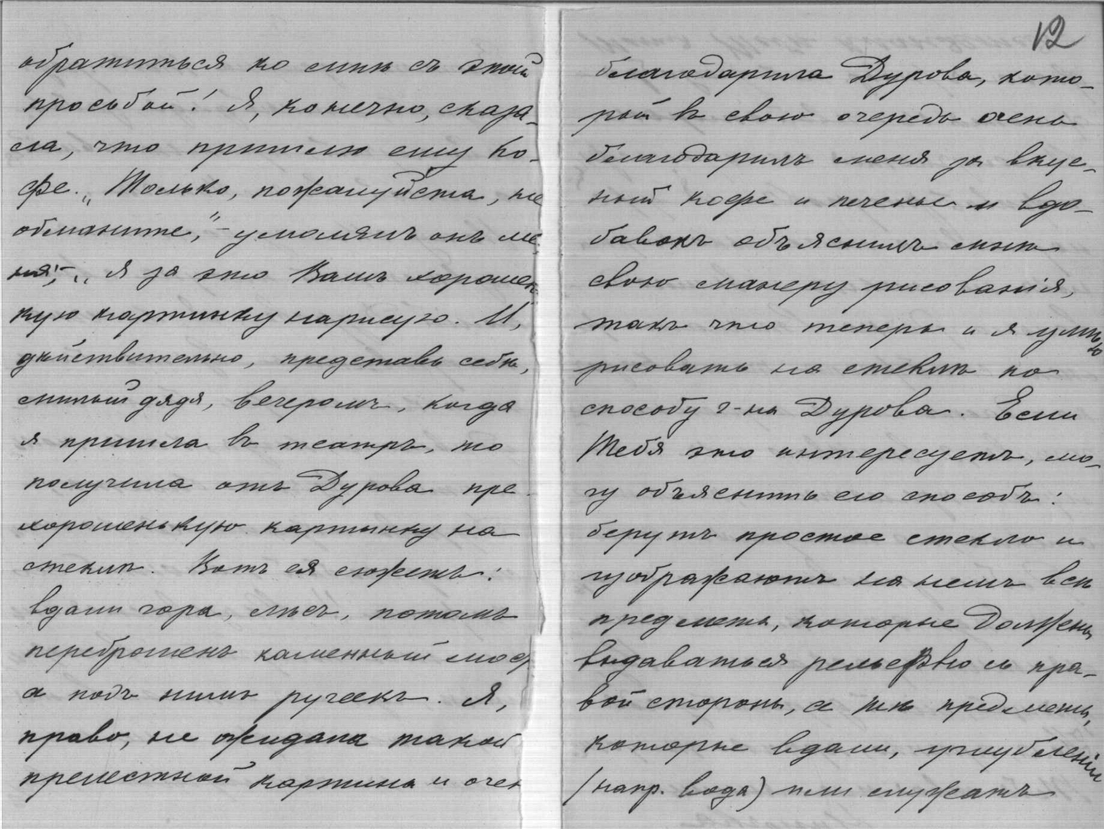 обратиться ко мнѣ съ этой
просьбой! Я, конечно, сказа-
ла, что пришлю ему ко-
фе. „Только, пожалуйста, не
обманите," - умолялъ онъ ме-
ня; - „я за это Вамъ хорошень
кую картинку нарисую. И,
дѣйствительно, представь себѣ,
милый дядя, вечеромъ, когда
я пришла въ театръ, то
получила отъ Дурова пре-
хорошенькую картинку на
стеклѣ. Вотъ ея сюжетъ:
вдали гора, лѣсъ, потомъ
переброшенъ каменный мос
а подъ нимъ ручеекъ. Я,
право, не ожидала такой
прелестной картины и очен
12
благодарила Дурова, кото-
рый въ свою очередь очень
благодарилъ меня за вкус-
ный кофе и печенье и вдо-
бавокъ объяснилъ мнѣ
свою манеру рисованія,
такъ что теперь и я умѣю
рисовать на стеклѣ по
способу г-на Дурова. Если
Тебя это интересуетъ, мо-
гу объяснить его способъ:
берутъ простое стекло и
изображаютъ на немъ всѣ
предметы, которые должны
выдаваться рельефно съ пра-
вой стороны, а тѣ предметы,
которые вдали, углубленіи
(напр. вода) или служатъ